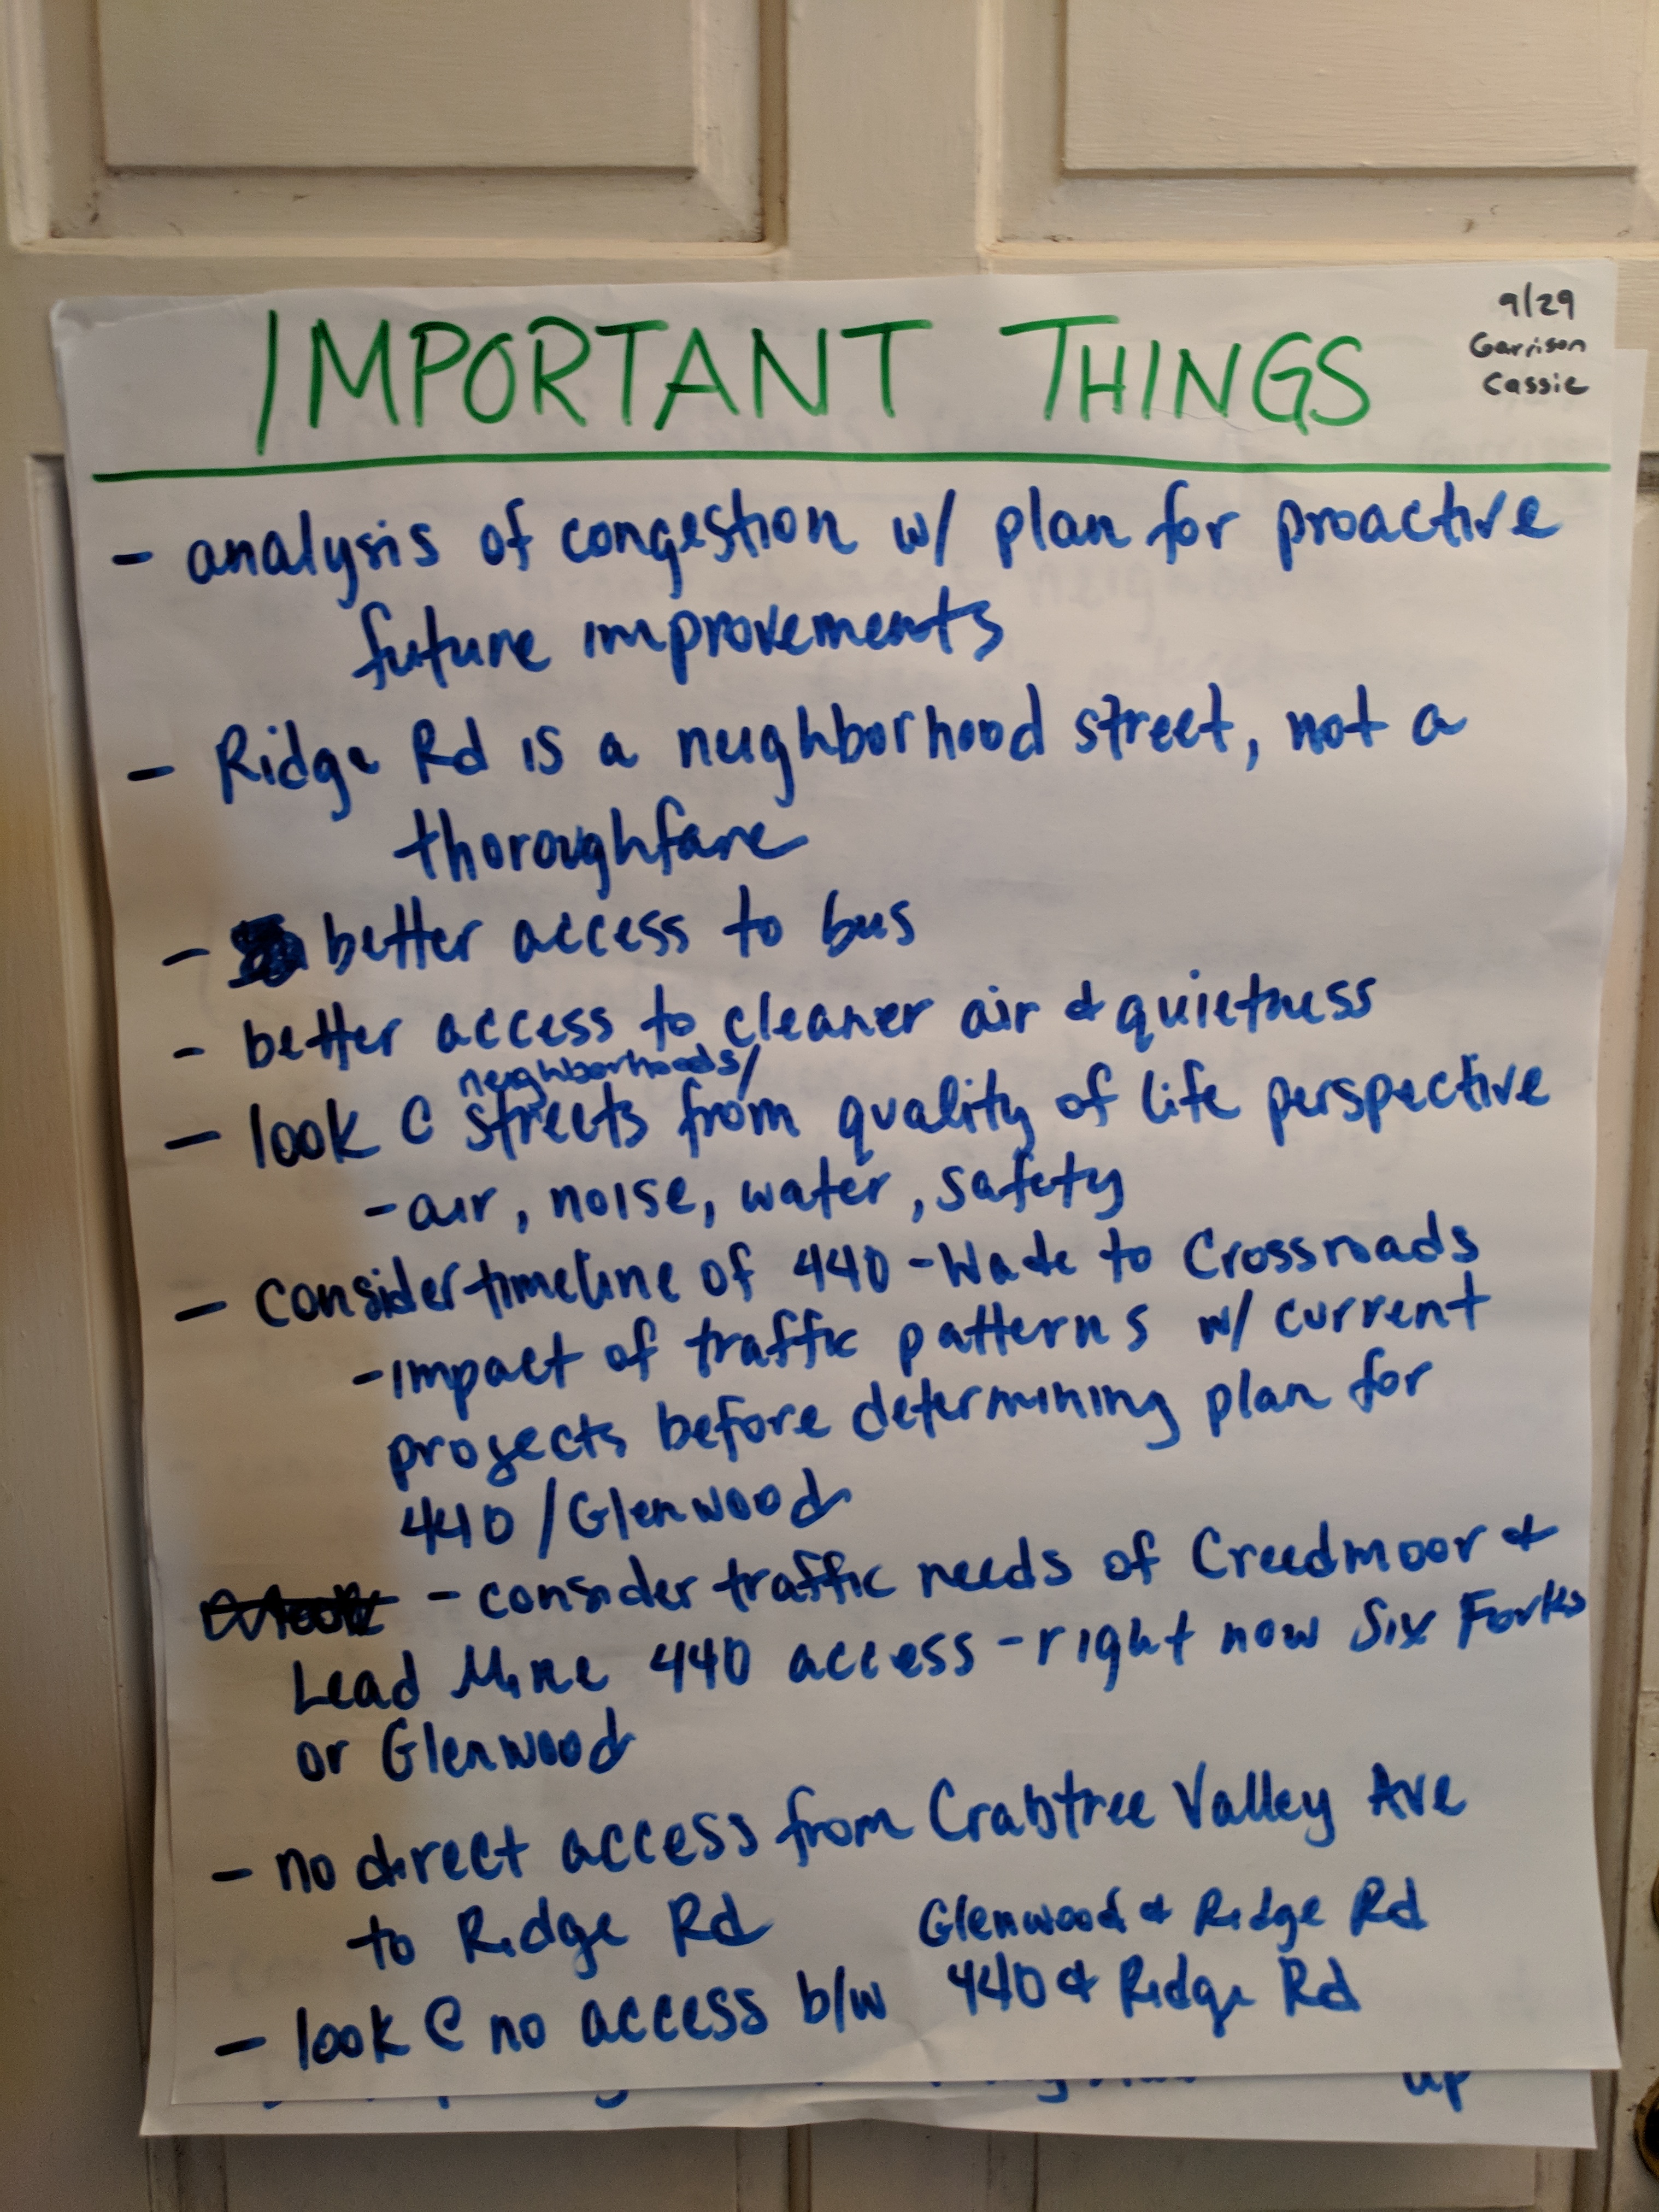 9/29
Garrison
Cassie
IMPORTANT THINGS
- analysis of congestion w/ plan for proactive
future improvements
- Ridge Rd is a neighborhood street, not a
thoroughfare
- better access to bus
- better access to cleaner air & quietness
neighborhoods/
- look @ streets from quality of life perspective
- air, noise, water, safety
- consider timeline of 440 - Wade to Crossroads
- impact of traffic patterns w/ current
projects before determining plan for
440 / Glenwood
- consider traffic needs of Creedmoor &
Lead Mine 440 access - right now Six Forks
or Glenwood
- no direct access from Crabtree Valley Ave
to Ridge Rd
Glenwood & Ridge Rd
- look @ no access b/w 440 & Ridge Rd
up